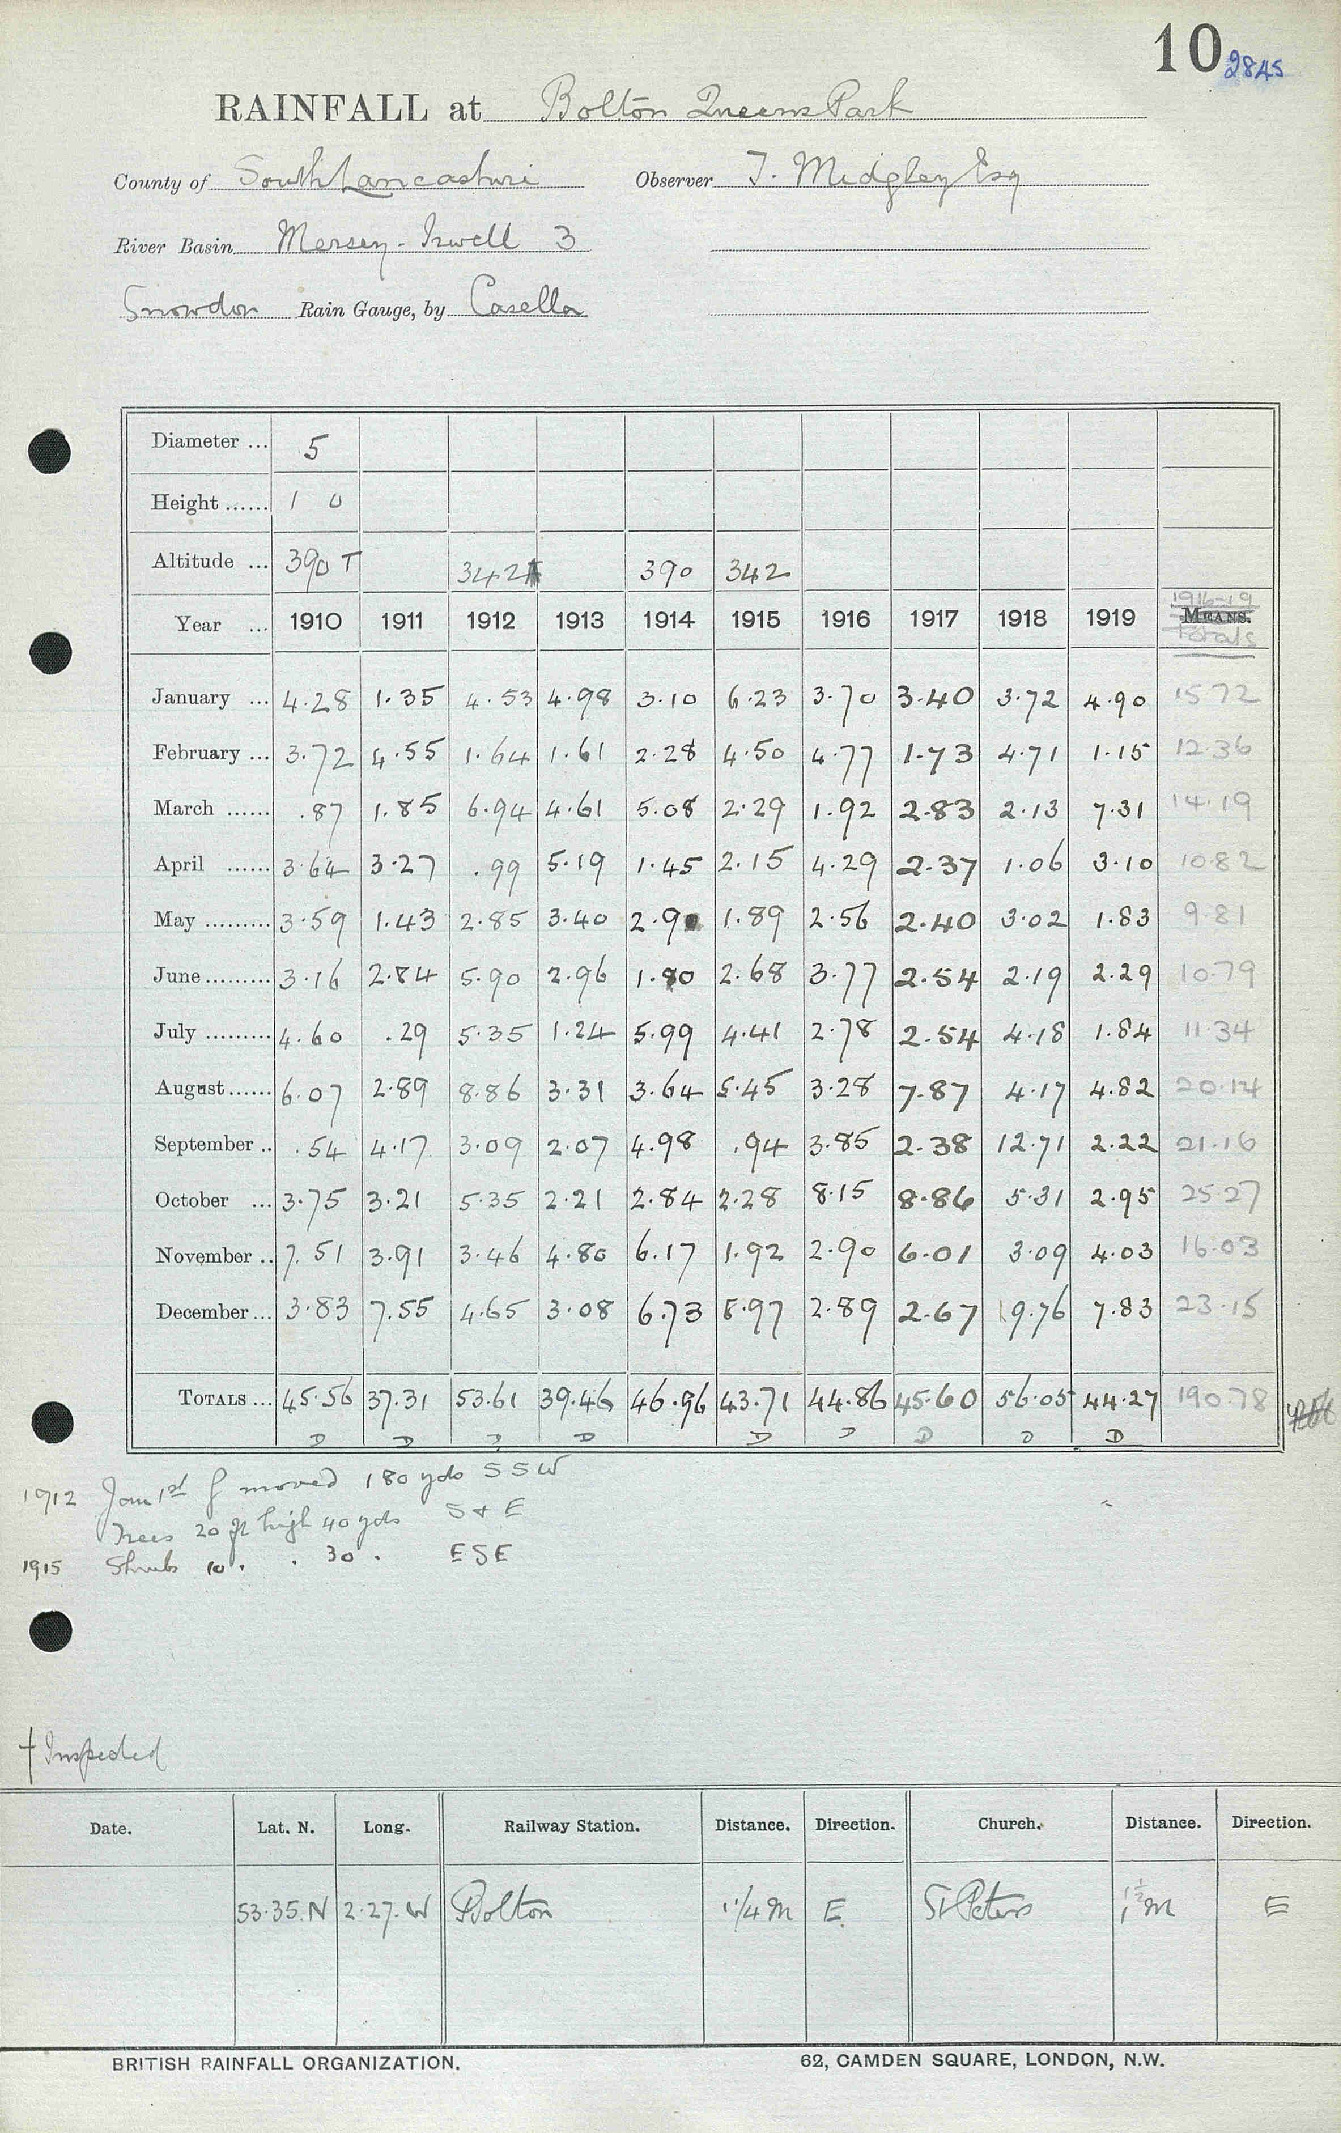 10 28AS
RAINFALL at Bolton Queens Park
County of South Lancashire Observer T. Midgley Esq
River Basin Mersey - Irwell 3
Snowdon Rain Gauge, by Casella
Diameter ... 5
Height ...... 1 0
Altitude ... 390 T 342 390 342
Year ... 1910 1911 1912 1913 1914 1915 1916 1917 1918 1919 1916-19 MEANS. Totals
January ... 4.28 1.35 4.53 4.98 3.10 6.23 3.70 3.40 3.72 4.90 15.72
February ... 3.72 4.55 1.64 1.61 2.28 4.50 4.77 1.73 4.71 1.15 12.36
March ...... .87 1.85 6.94 4.61 5.08 2.29 1.92 2.83 2.13 7.31 14.19
April ...... 3.64 3.27 .99 5.19 1.45 2.15 4.29 2.37 1.06 3.10 10.82
May ......... 3.59 1.43 2.85 3.40 2.90 1.89 2.56 2.40 3.02 1.83 9.81
June ......... 3.16 2.84 5.90 2.96 1.80 2.68 3.77 2.54 2.19 2.29 10.79
July ......... 4.60 .29 5.35 1.24 5.99 4.41 2.78 2.54 4.18 1.84 11.34
August ...... 6.07 2.89 8.86 3.31 3.64 5.45 3.28 7.87 4.17 4.82 20.14
September .. .54 4.17 3.09 2.07 4.98 .94 3.85 2.38 12.71 2.22 21.16
October ... 3.75 3.21 5.35 2.21 2.84 2.28 8.15 8.86 5.31 2.95 25.27
November .. 7.51 3.91 3.46 4.80 6.17 1.92 2.90 6.01 3.09 4.03 16.03
December ... 3.83 7.55 4.65 3.08 6.73 8.97 2.89 2.67 9.76 7.83 23.15
TOTALS ... 45.56 37.31 53.61 39.46 46.96 43.71 44.86 45.60 56.05 44.27 190.78
D D D D D D D D D
1912 Jan 1st g moved 180 yds SSW
Trees 20 ft high 40 yds S & E
1915 Shrubs 10 . . 30 . ESE
† Inspected
Date. Lat. N. Long. Railway Station. Distance. Direction. Church. Distance. Direction.
53.35.N 2.27.W Bolton 1 1/4 m E. St Peters 1 1/2 m E
BRITISH RAINFALL ORGANIZATION. 62, CAMDEN SQUARE, LONDON, N.W.